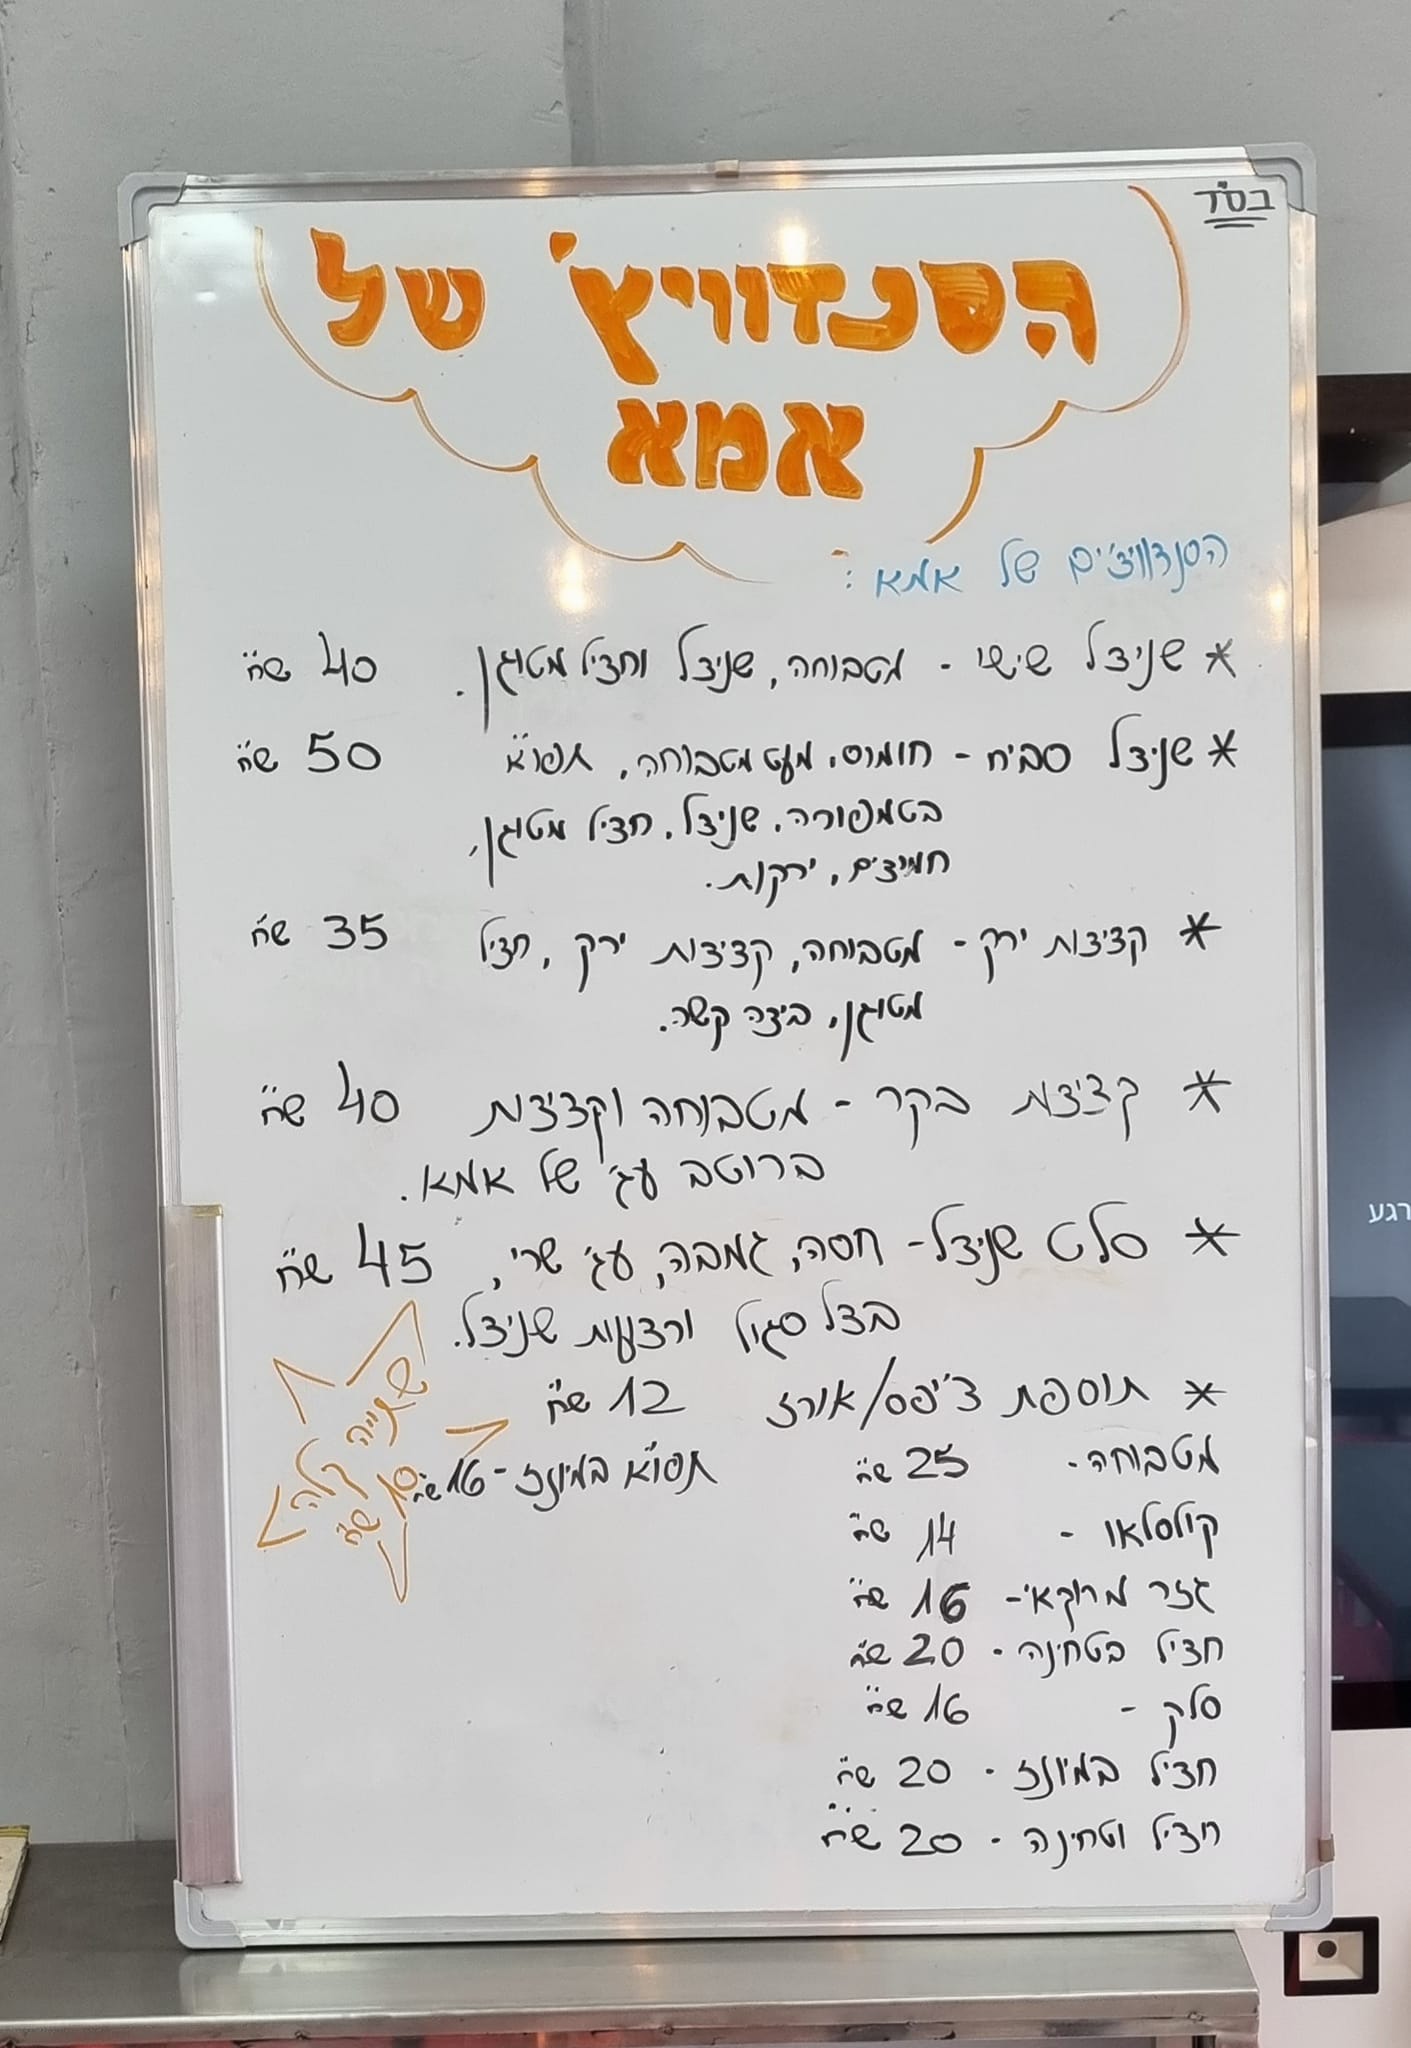 בס"ד
הסנדוויץ' של
אמא
הסנדוויצ'ים של אמא:
* שניצל שישי - מטבוחה, שניצל וחציל מטוגן. 40 ש"ח
* שניצל סביח - חומוס, מעט מטבוחה, תפו"א 50 ש"ח
בטמפורה, שניצל, חציל מטוגן,
חמוצים, ירקות.
* קציצות ירק - מטבוחה, קציצות ירק, חציל 35 ש"ח
מטוגן, ביצה קשה.
* קציצות בקר - מטבוחה וקציצות 40 ש"ח
ברוטב עג' של אמא.
* סלט שניצל - חסה, גמבה, עג' שרי, 45 ש"ח
בצל סגול ורצועות שניצל.
* תוספת צ'יפס/אורז 12 ש"ח
מטבוחה - 25 ש"ח
תפו"א במיונז - 16 ש"ח
קולסלאו - 14 ש"ח
גזר מרוקאי - 16 ש"ח
חציל בטחינה - 20 ש"ח
סלק - 16 ש"ח
חציל במיונז - 20 ש"ח
חציל וטחינה - 20 ש"ח
שתייה
קלה
10 ש"ח
רגע